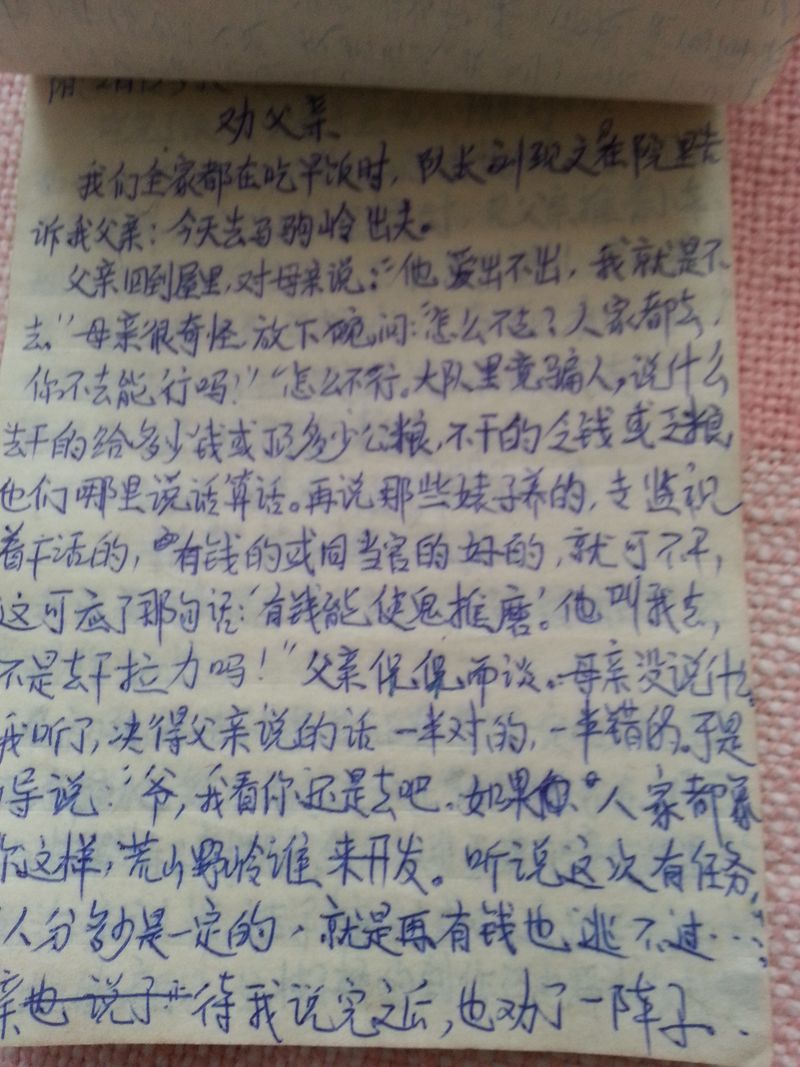 劝父亲
我们全家都在吃早饭时，队长刘现文在院里告
诉我父亲：今天去马驹岭出夫。
父亲回到屋里，对母亲说：“他爱出不出，我就是不
去”母亲很奇怪放下碗问：“怎么不去？人家都去，
你不去能行吗！”“怎么不行。大队里竟骗人，说什么
去干的给多少钱或顶多少公粮，不干的 钱或 粮，
他们哪里说话算话。再说那些婊子养的，专监视
着干活的，有钱的或同当官的好的，就可不干，
这可应了那句话：‘有钱能使鬼推磨’。他叫我去，
不是去干拉力吗！”父亲侃侃而谈。母亲没说什
我听了，决得父亲说的话一半对的，一半错的。于是
导说：“爷，我看你还是去吧。如果 人家都象
你这样，荒山野岭谁来开发。听说这次有任务，
人分多少是一定的，就是再有钱也逃不过…
亲也说了 待我说完之后，也劝了一阵子..